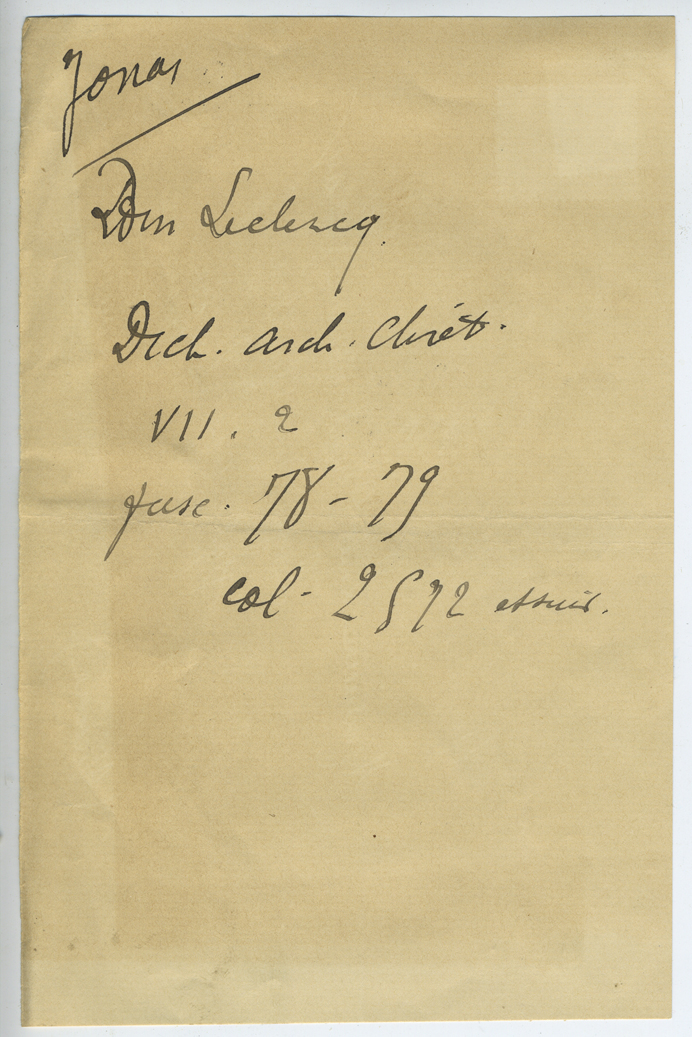 Jonas
Dom Leclercq
Dict. Arch. Chrét.
VII. 2
fasc. 78-79
col. 2572 et suiv.